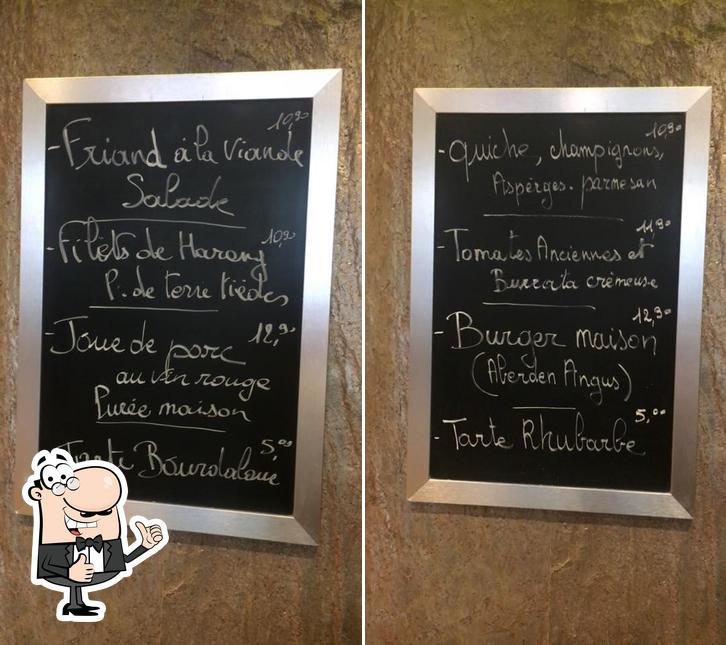 10,90
- Friand à la Viande
Salade
- Filets de Hareng 10,90
P. de terre tièdes
- Joue de porc 12,90
au vin rouge
Purée maison
5,00
Tarte Bourdaloue
10,90
- Quiche, champignons,
Asperges. parmesan
11,90
- Tomates Anciennes et
Burrata crèmeuse
12,90
- Burger maison
(Aberden Angus)
5,00
- Tarte Rhubarbe